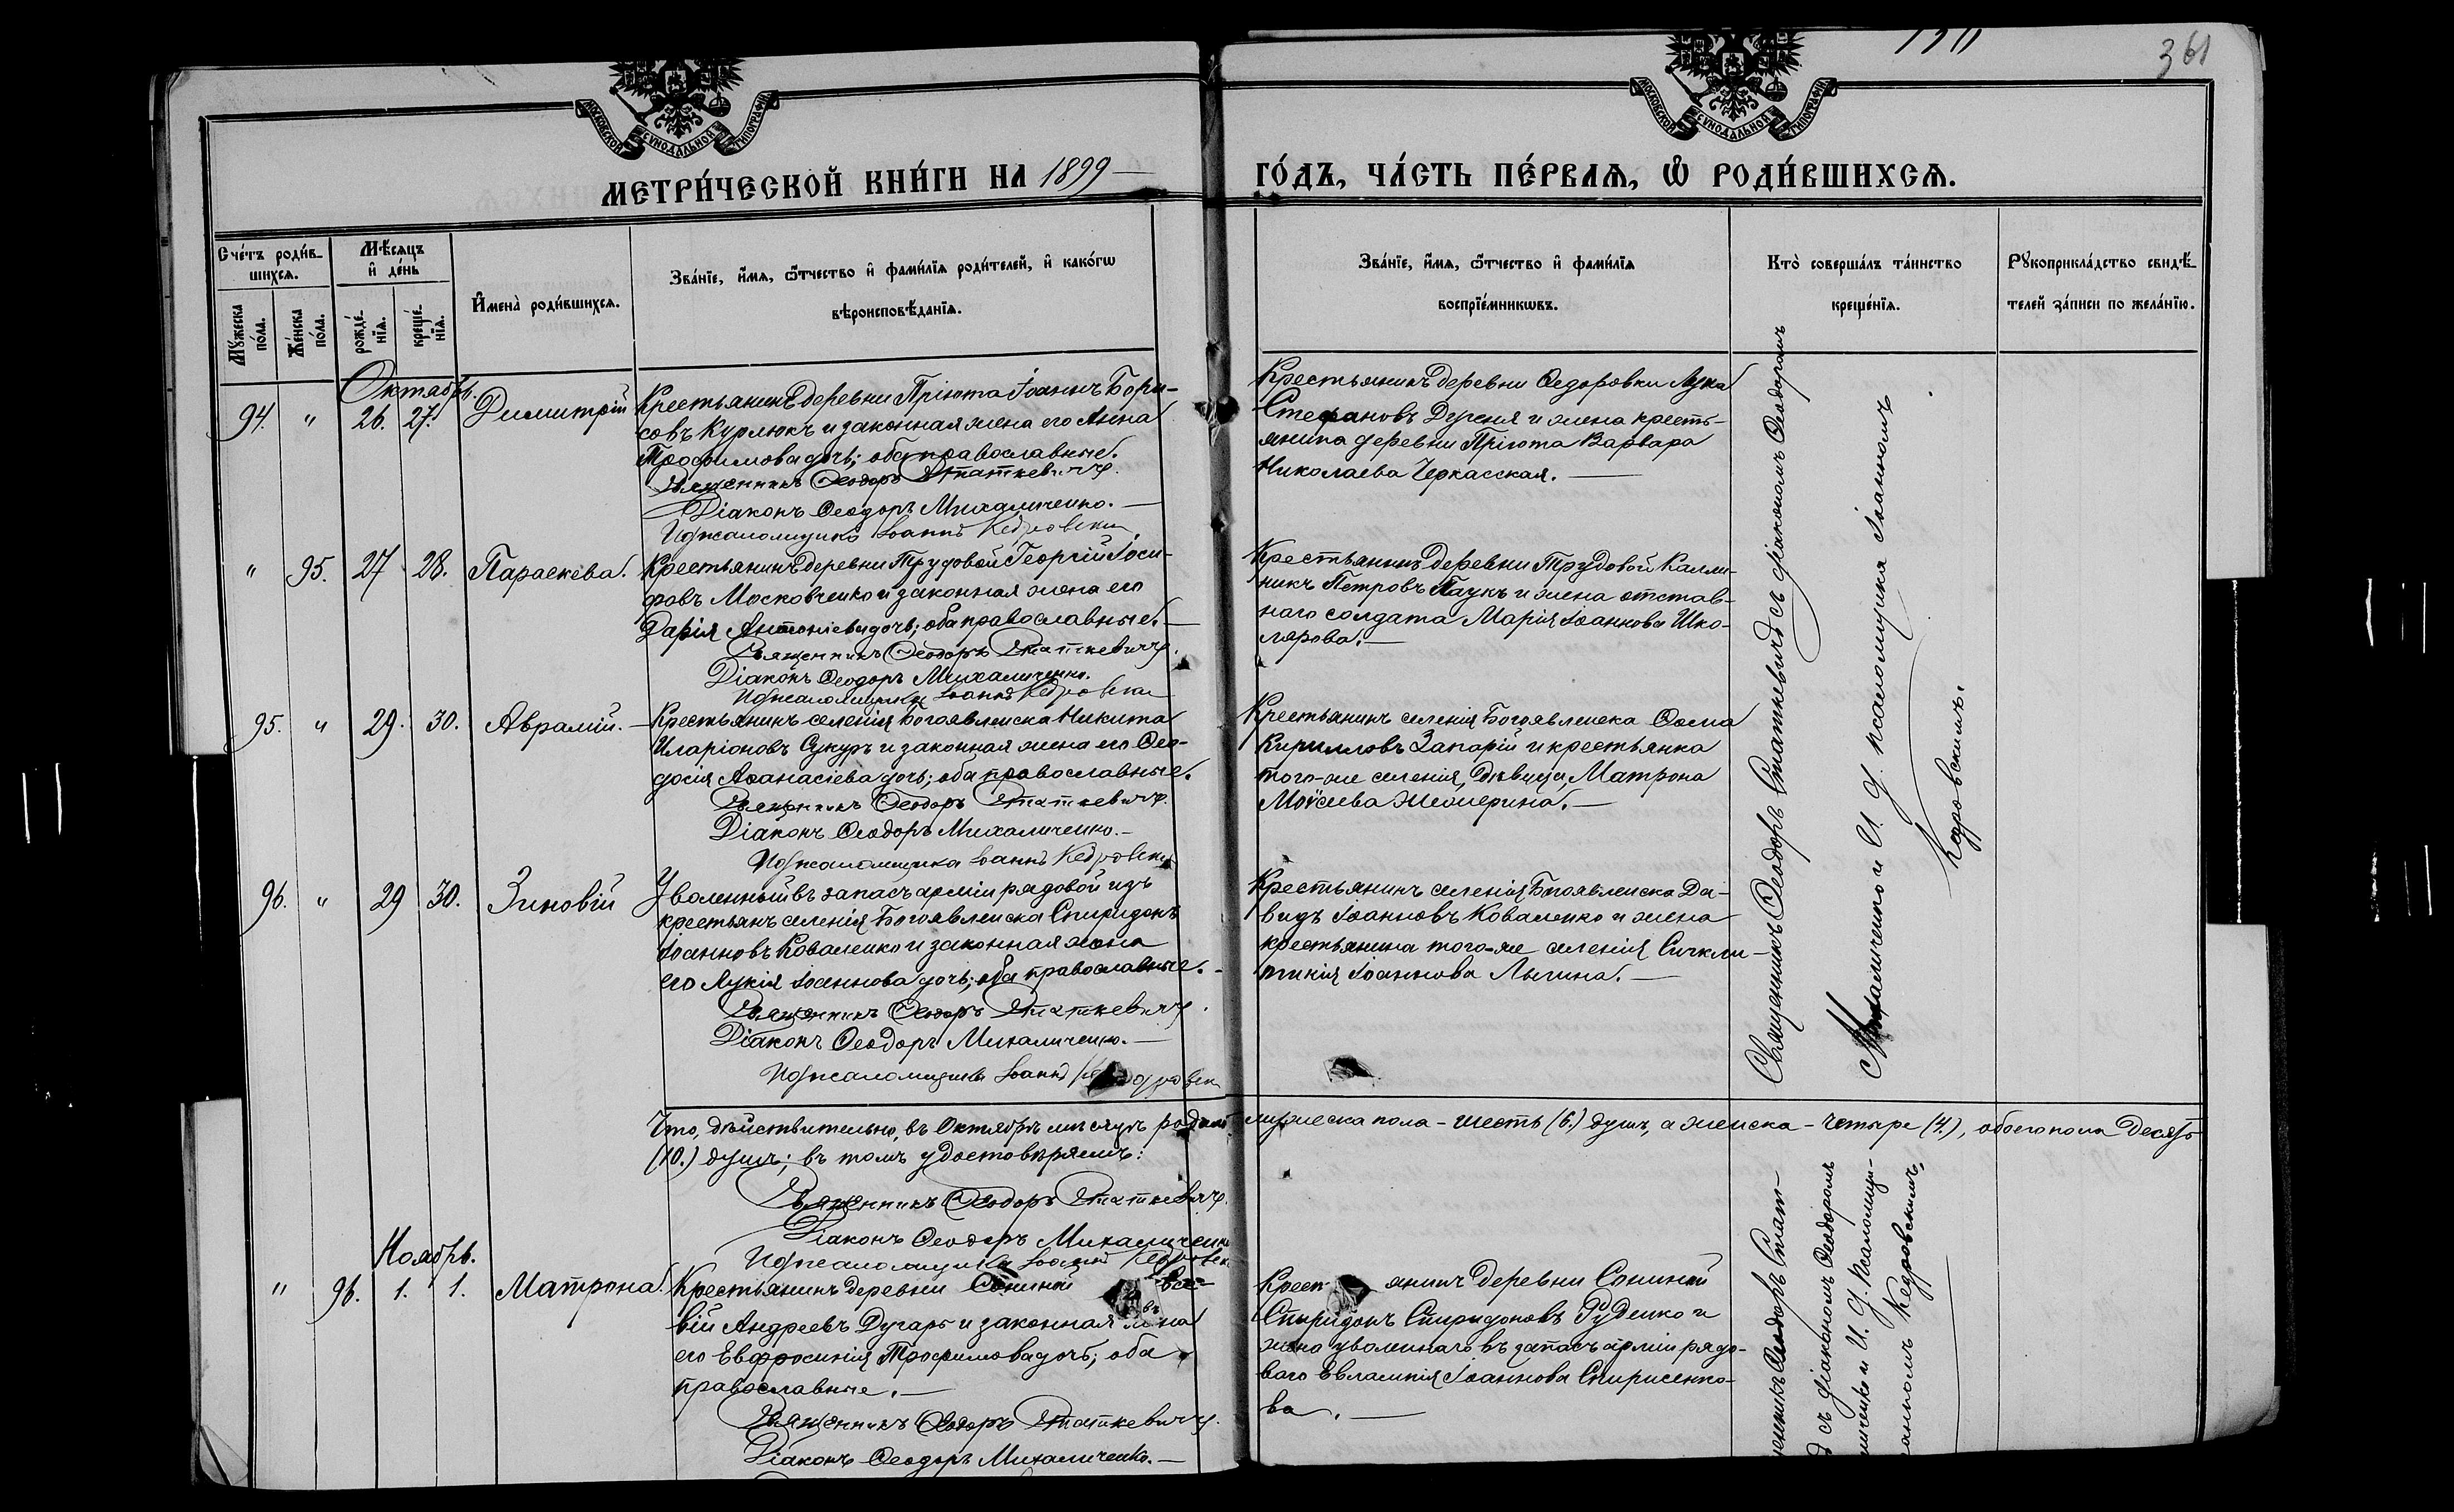 361
МОСКОВСКОЙ СѴНОДАЛЬНОЙ ТИПОГРАФІИ
МОСКОВСКОЙ СѴНОДАЛЬНОЙ ТИПОГРАФІИ
МЕТРИ́ЧЕСКОЙ КНИ́ГИ НА 1899 —
ГО́ДЪ, ЧА́СТЬ ПЕ́РВАѦ, Ѿ РОДИ́ВШИХСѦ.
Сче́тъ роди́в-
шихсѧ.
Мꙋ́жеска по́ла.
Же́нска по́ла.
Мѣ́сѧцъ и҆ де́нь
рожде́-нїѧ.
креще́-нїѧ.
И҆мена̀ роди́вшихсѧ.
Зва́нїе, и҆́мѧ, ѻ҆́тчество и҆ фами́лїѧ роди́телей, и҆ како́гѡ
вѣроисповѣ́данїѧ.
Зва́нїе, и҆́мѧ, ѻ҆́тчество и҆ фами́лїѧ
воспрїе́мникѡвъ.
Кто̀ соверша́лъ та́инство
креще́нїѧ.
Рꙋкоприкла́дство свидѣ́-
телей за́писи по жела́нїю.
Октябрь.
94. " 26. 27. Димитрій
Крестьянинъ деревни Пріюта Іоаннъ Бори-
совъ Курлюкъ и законная жена его Анна
Трофимова дочь; оба православные.
Священникъ Ѳеодоръ Статкевичъ.
Діаконъ Ѳеодоръ Михаличенко. —
И д псаломщика Іоаннъ Кедровскій
Крестьянинъ деревни Ѳедоровки Лука
Стефановъ Дученя и жена кресть-
янина деревни Пріюта Варвара
Николаева Черкасская. —
" 95. 27 28. Параскева.
Крестьянинъ деревни Трудовой Георгій Іоси-
фовъ Московченко и законная жена его
Дарія Антоніева дочь; оба православные. —
Священникъ Ѳеодоръ Статкевичъ.
Діаконъ Ѳеодоръ Михаличенко.
И д псаломщика Іоаннъ Кедровскій
Крестьянинъ деревни Трудовой Калли-
никъ Петровъ Паукъ и жена отстав-
наго солдата Марія Іоаннова Шко-
лярова. —
95. " 29. 30. Аврамій. —
Крестьянинъ селенія Богоявленска Никита
Иларіоновъ Сукуръ и законная жена его Ѳео-
досія Аѳанасіева дочь; оба православные.
Священникъ Ѳеодоръ Статкевичъ.
Діаконъ Ѳеодоръ Михаличенко. —
И д псаломщика Іоаннъ Кедровскій
Крестьянинъ селенія Богоявленска Ѳома
Кирилловъ Запарій и крестьянка
того-же селенія, дѣвица, Матрона
Моѵсеева Жемерина. —
96. " 29 30. Зиновій
Уволенный въ запасъ арміи рядовой изъ
крестьянъ селенія Богоявленска Спиридонъ
Іоанновъ Коваленко и законная жена
его Лукія Іоаннова дочь; оба православные. —
Священникъ Ѳеодоръ Статкевичъ.
Діаконъ Ѳеодоръ Михаличенко. —
И д псаломщика Іоаннъ Кедровскій
Крестьянинъ селенія Богоявленска Да-
видъ Іоанновъ Коваленко и жена
крестьянина того-же селенія Сигкли-
тикія Іоаннова Лычина. —
Священникъ Ѳеодоръ Статкевичъ съ діакономъ Ѳеодоромъ
Михаличенко и И. д. псаломщика Іоанномъ
Кедровскимъ.
Что, дѣйствительно, въ Октябрѣ мѣсяцѣ родилось мужеска пола - шесть (6.) душъ, а женска - четыре (4.), обоего пола десять
(10.) душъ; въ томъ удостовѣряемъ:
Священникъ Ѳеодоръ Статкевичъ.
Діаконъ Ѳеодоръ Михаличенко
И д псаломщика Іоаннъ Кедровскій
Ноябрь.
" 96. 1. 1. Матрона.
Крестьянинъ деревни Сониной Евсе-
вій Андреевъ Дугарь и законная жена
его Евфросинія Трофимова дочь; оба
православные. —
Священникъ Ѳеодоръ Статкевичъ.
Діаконъ Ѳеодоръ Михаличенко. —
Крестьянинъ деревни Сониной
Спиридонъ Спиридоновъ Руденко и
жена уволеннаго въ запасъ арміи рядо-
вого Евлампія Іоаннова Спирисенко-
ва. —
Священникъ Ѳеодоръ Стат-
съ діакономъ Ѳеодоромъ
личенко и И. д. псаломщи-
анномъ Кедровскимъ.